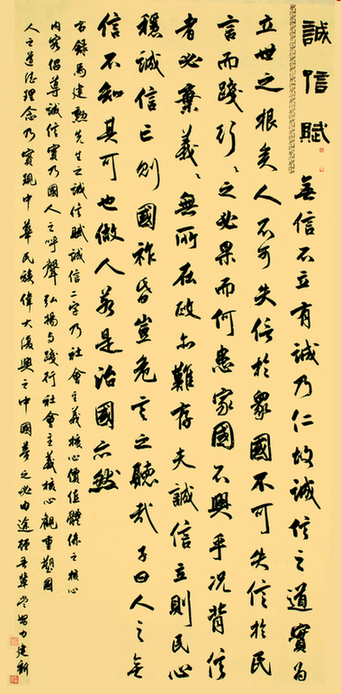 誠信賦
無信不立有誠乃仁故誠信之道實為
立世之根矣人不可失信於眾國不可失信於民
言而踐行之必果而何患家國不興乎況背信
者必棄義無所在政亦難存夫誠信立則民心
穩誠信亡則國祚昏豈危言之聽哉子曰人之無
信不知其可也做人若是治國亦然
右錄馬建勳先生之誠信賦誠信二字乃社會主義核心價值體係之核心
內容倡導誠信實乃國人之呼聲弘揚與踐行社會主義核心觀重塑國
人之道德理念乃實現中華民族偉大復興之中國夢之必由途徑吾輩當努力建新